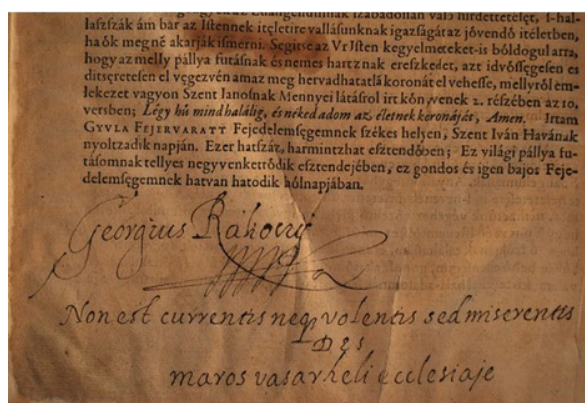 laszszák ám bár az Istennek iteletire vallásunknak igazságát az jövendö itéletben,
ha ök meg né akarják ismerni. Segitse az Vr Isten kegyelmeteket-is bòldogul arra,
hogy az melly pállya futásnak és nemes hartznak ereszkedet, azt idvösségesen és
ditséretesen el végezvén amaz meg hervadhatatlá koronát el vehesse, mellyröl em-
lekezet vagyon Szent Janosnak Mennyei látásrol irt könyvenek 2. részében az 10.
versben; Légy hú mind halálig, és néked adom az életnek koronáját, Amen. Irtam
GYVLA FEJERVARATT Fejedelemségemnek székes helyen, Szent Iván Havának
nyoltzadik napján. Ezer hatszáz, harmintzhat esztendöben; Ez világi pállya fu-
tásomnak tellyes negyvenkettödik esztendejében, ez gondos és igen bajos Feje-
delemségemnek hatvan hatodik hólnapjában.
Georgius Rákoczy
Non est currentis neq volentis sed miserentis
Dei
maros vasarheli ecclesiaje